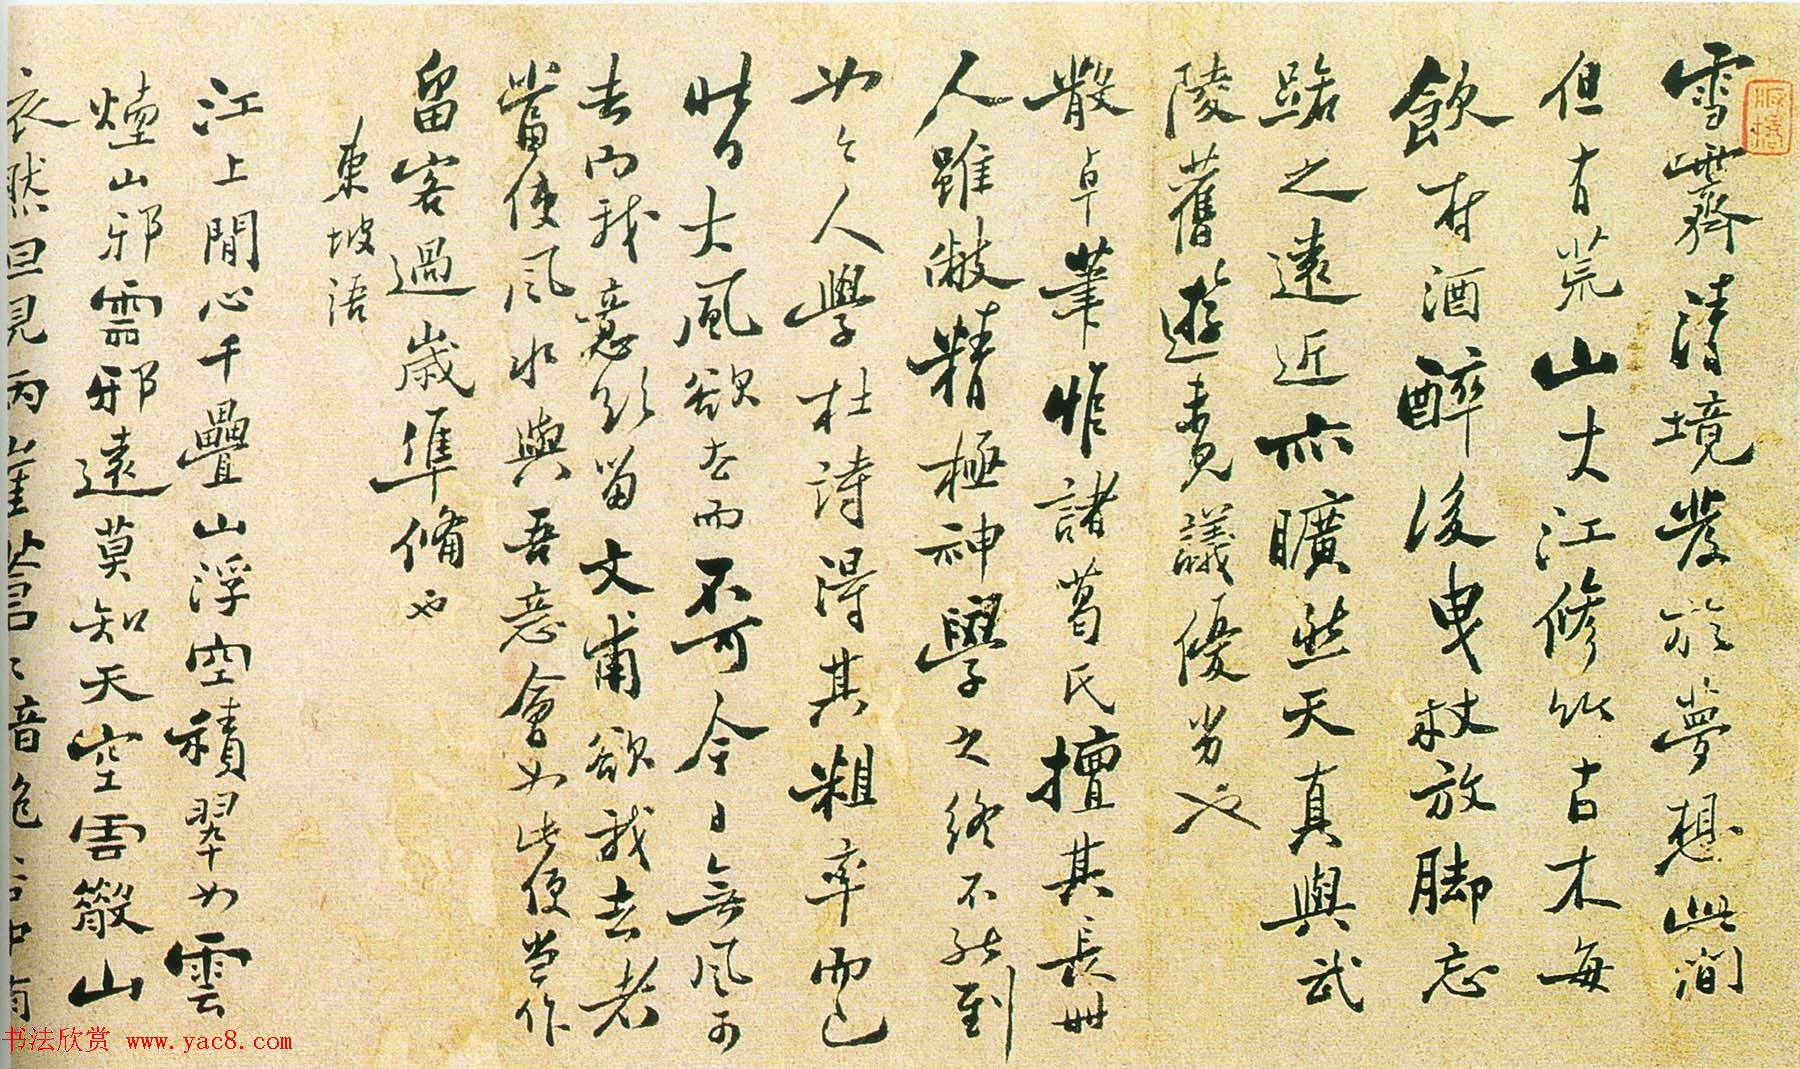 雪霽清境發於夢想此間
但有荒山大江修竹古木每
飲村酒醉後曳杖放脚忘
踞之遠近亦曠然天真與武
陵舊遊未見議優劣也
散卓筆惟諸葛氏擅其長世
人雖敝精極神學之終不能到
如人學杜詩得其粗率而已
昔大風欲去而不可今日無風可
去而我意欲留文甫欲我去者
當使風水與吾意會如此便當作
留客過歲準備也
東坡語
江上閒心千疊山浮空積翠如雲
煙山邪雲邪遠莫知天空雲散山
依然但見兩崖蒼々暗絶谷中有
书法欣赏 www.yac8.com